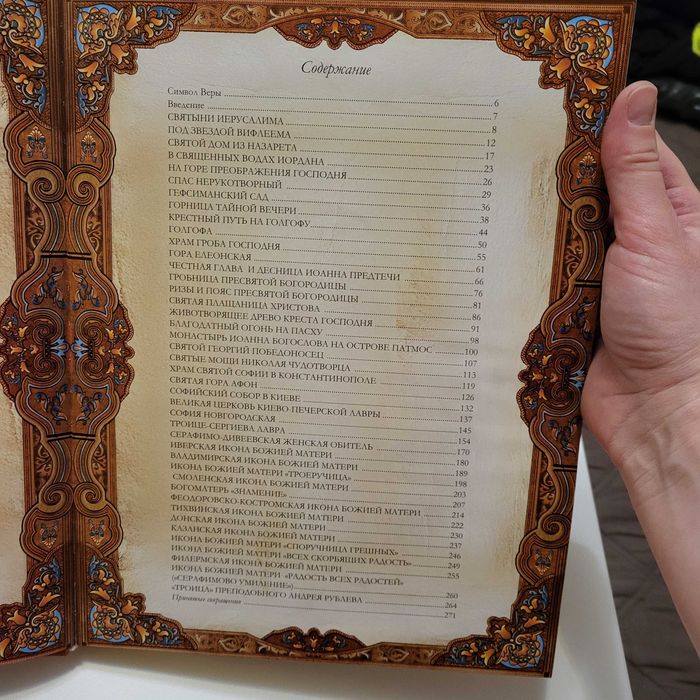 Содержание
Символ Веры 6
Введение 7
СВЯТЫНИ ИЕРУСАЛИМА 8
ПОД ЗВЕЗДОЙ ВИФЛЕЕМА 12
СВЯТОЙ ДОМ ИЗ НАЗАРЕТА 17
В СВЯЩЕННЫХ ВОДАХ ИОРДАНА 23
НА ГОРЕ ПРЕОБРАЖЕНИЯ ГОСПОДНЯ 26
СПАС НЕРУКОТВОРНЫЙ 29
ГЕФСИМАНСКИЙ САД 36
ГОРНИЦА ТАЙНОЙ ВЕЧЕРИ 38
КРЕСТНЫЙ ПУТЬ НА ГОЛГОФУ 44
ГОЛГОФА 50
ХРАМ ГРОБА ГОСПОДНЯ 55
ГОРА ЕЛЕОНСКАЯ 61
ЧЕСТНАЯ ГЛАВА И ДЕСНИЦА ИОАННА ПРЕДТЕЧИ 66
ГРОБНИЦА ПРЕСВЯТОЙ БОГОРОДИЦЫ 76
РИЗЫ И ПОЯС ПРЕСВЯТОЙ БОГОРОДИЦЫ 81
СВЯТАЯ ПЛАЩАНИЦА ХРИСТОВА 86
ЖИВОТВОРЯЩЕЕ ДРЕВО КРЕСТА ГОСПОДНЯ 91
БЛАГОДАТНЫЙ ОГОНЬ НА ПАСХУ 98
МОНАСТЫРЬ ИОАННА БОГОСЛОВА НА ОСТРОВЕ ПАТМОС 100
СВЯТОЙ ГЕОРГИЙ ПОБЕДОНОСЕЦ 107
СВЯТЫЕ МОЩИ НИКОЛАЯ ЧУДОТВОРЦА 113
ХРАМ СВЯТОЙ СОФИИ В КОНСТАНТИНОПОЛЕ 119
СВЯТАЯ ГОРА АФОН 126
СОФИЙСКИЙ СОБОР В КИЕВЕ 132
ВЕЛИКАЯ ЦЕРКОВЬ КИЕВО-ПЕЧЕРСКОЙ ЛАВРЫ 137
СОФИЯ НОВГОРОДСКАЯ 145
ТРОИЦЕ-СЕРГИЕВА ЛАВРА 154
СЕРАФИМО-ДИВЕЕВСКАЯ ЖЕНСКАЯ ОБИТЕЛЬ 170
ИВЕРСКАЯ ИКОНА БОЖИЕЙ МАТЕРИ 180
ВЛАДИМИРСКАЯ ИКОНА БОЖИЕЙ МАТЕРИ 189
ИКОНА БОЖИЕЙ МАТЕРИ «ТРОЕРУЧИЦА» 198
СМОЛЕНСКАЯ ИКОНА БОЖИЕЙ МАТЕРИ 203
БОГОМАТЕРЬ «ЗНАМЕНИЕ» 207
ФЕОДОРОВСКО-КОСТРОМСКАЯ ИКОНА БОЖИЕЙ МАТЕРИ 214
ТИХВИНСКАЯ ИКОНА БОЖИЕЙ МАТЕРИ 222
ДОНСКАЯ ИКОНА БОЖИЕЙ МАТЕРИ 230
КАЗАНСКАЯ ИКОНА БОЖИЕЙ МАТЕРИ 237
ИКОНА БОЖИЕЙ МАТЕРИ «СПОРУЧНИЦА ГРЕШНЫХ» 246
ИКОНА БОЖИЕЙ МАТЕРИ «ВСЕХ СКОРБЯЩИХ РАДОСТЬ» 249
ФИЛЕРМСКАЯ ИКОНА БОЖИЕЙ МАТЕРИ 255
ИКОНА БОЖИЕЙ МАТЕРИ «РАДОСТЬ ВСЕХ РАДОСТЕЙ»
(«СЕРАФИМОВО УМИЛЕНИЕ») 260
«ТРОИЦА» ПРЕПОДОБНОГО АНДРЕЯ РУБЛЕВА 264
Принятые сокращения 271